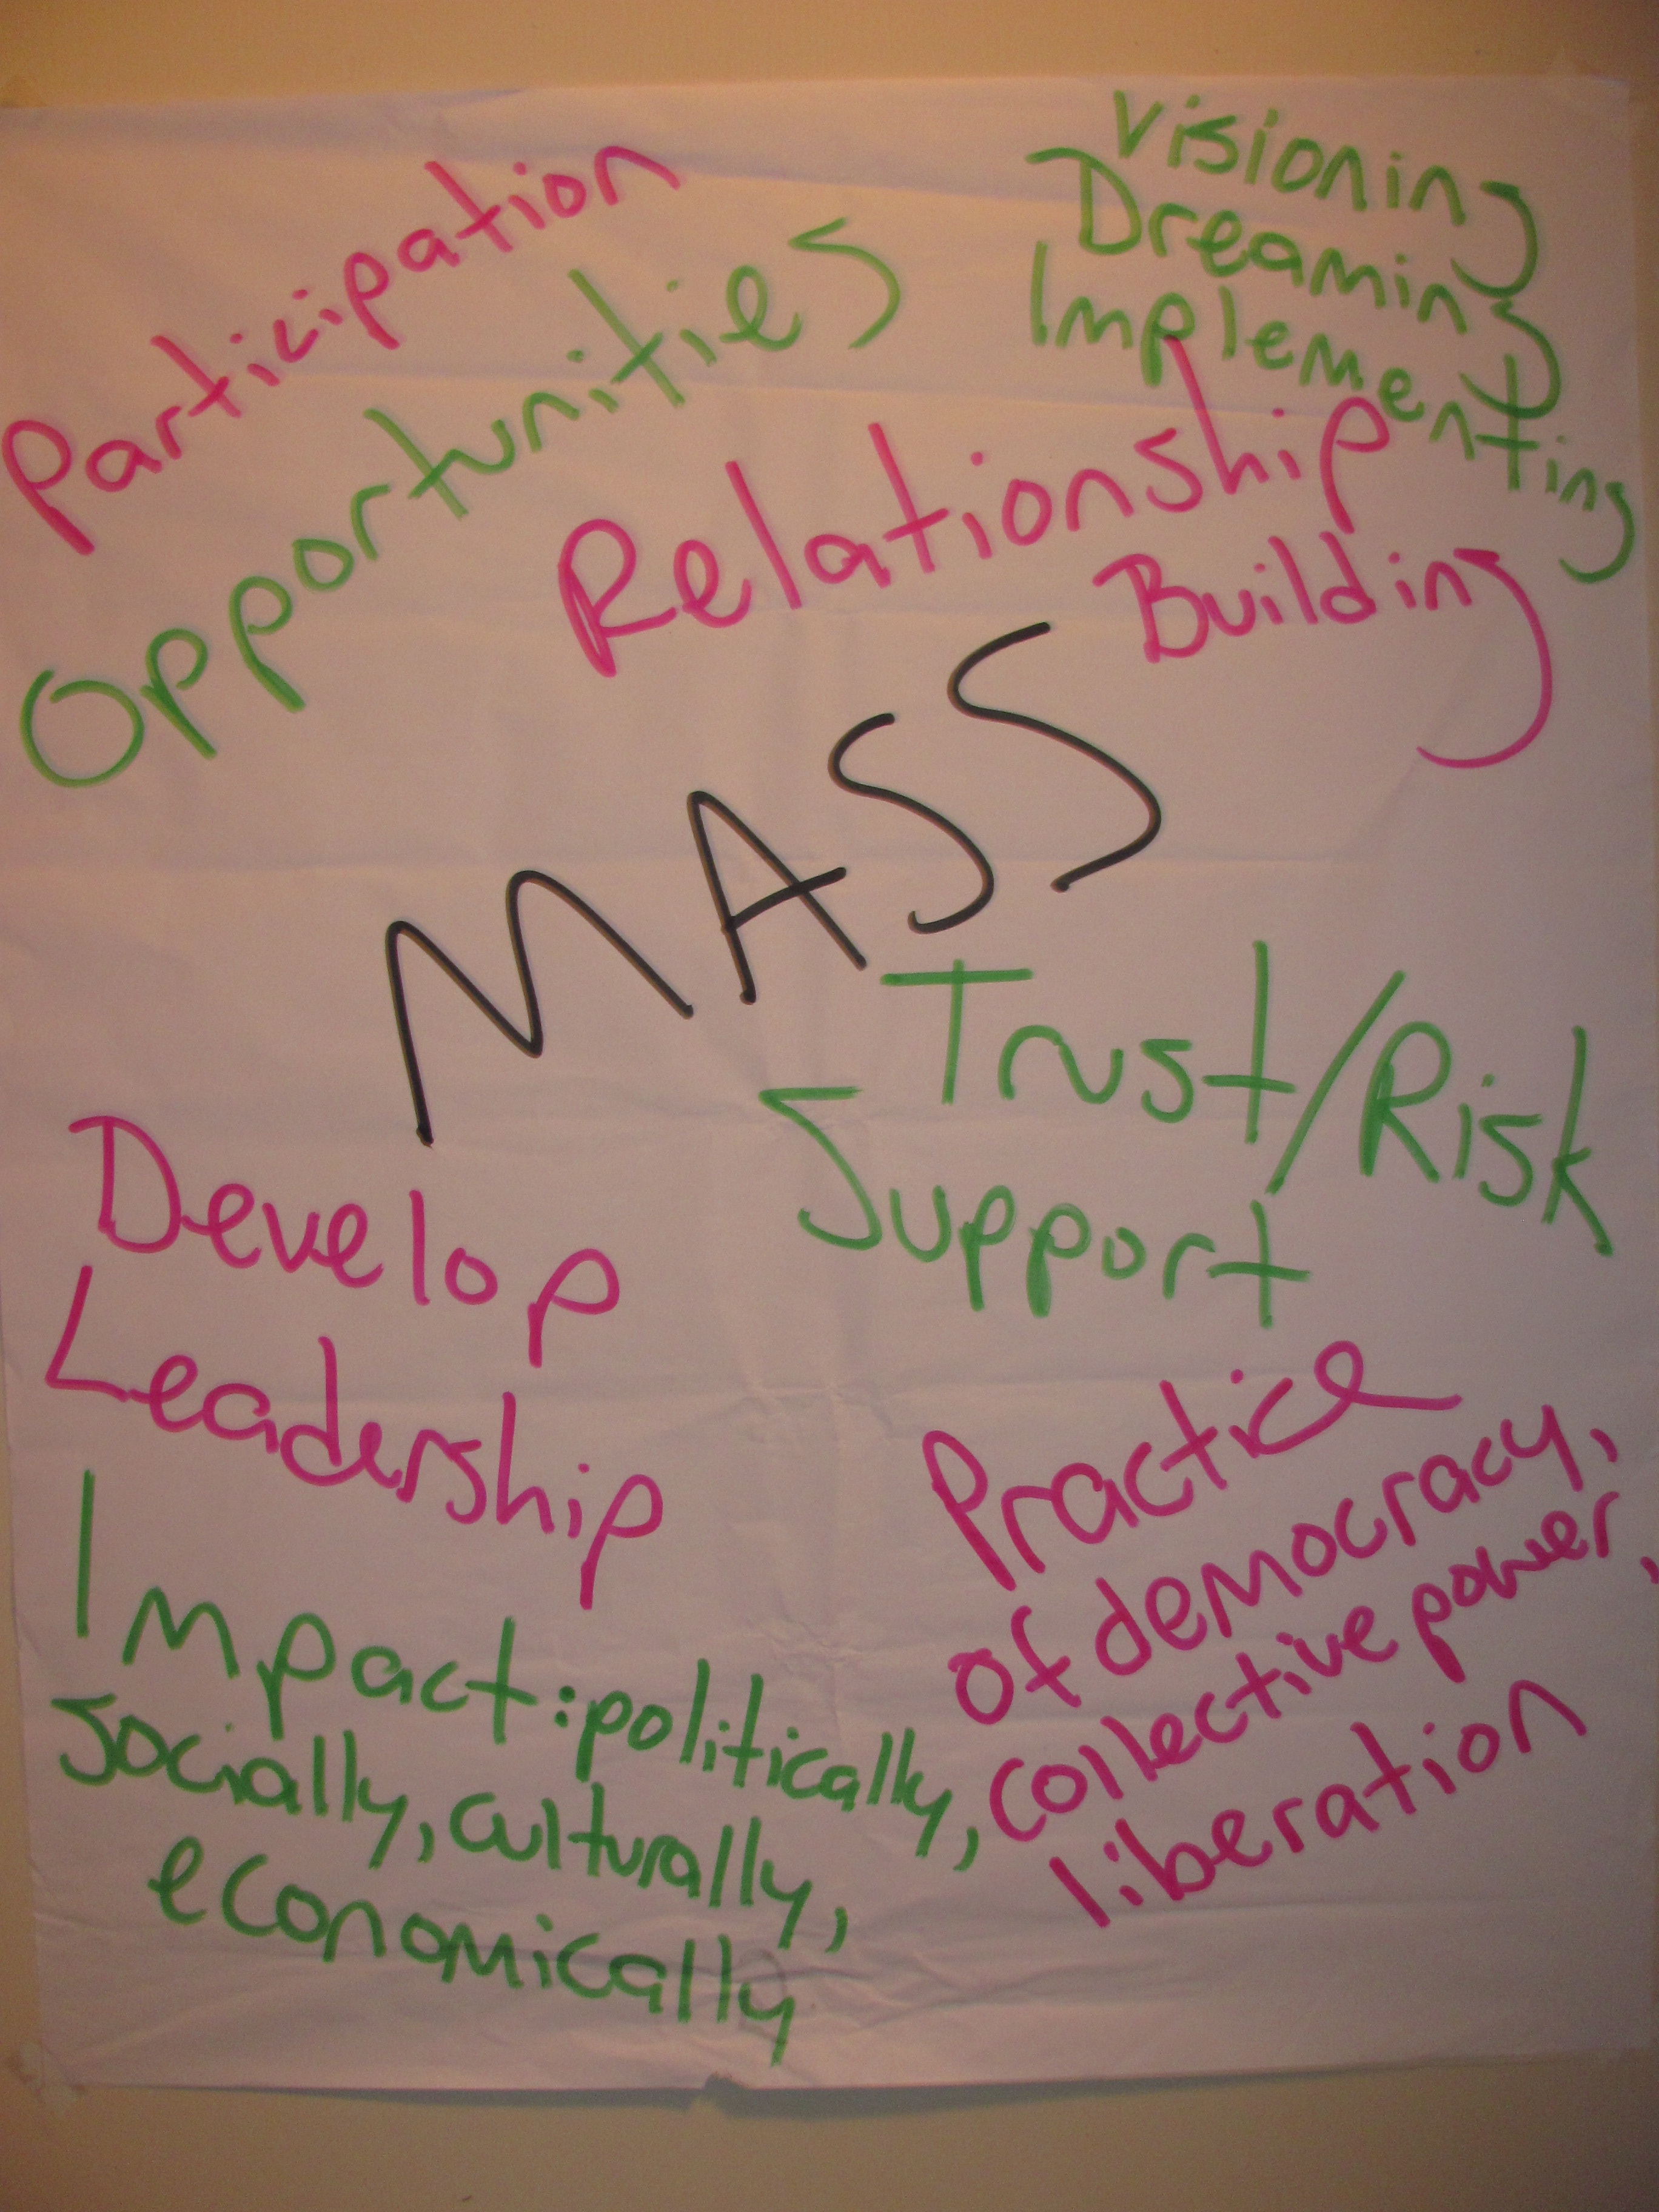 Participation
Opportunities
Visioning
Dreaming
Implementing
Relationship
Building
MASS
Trust/Risk
Support
Develop
Leadership
Impact: politically,
socially, culturally,
economically
Practice
of democracy,
collective power,
liberation